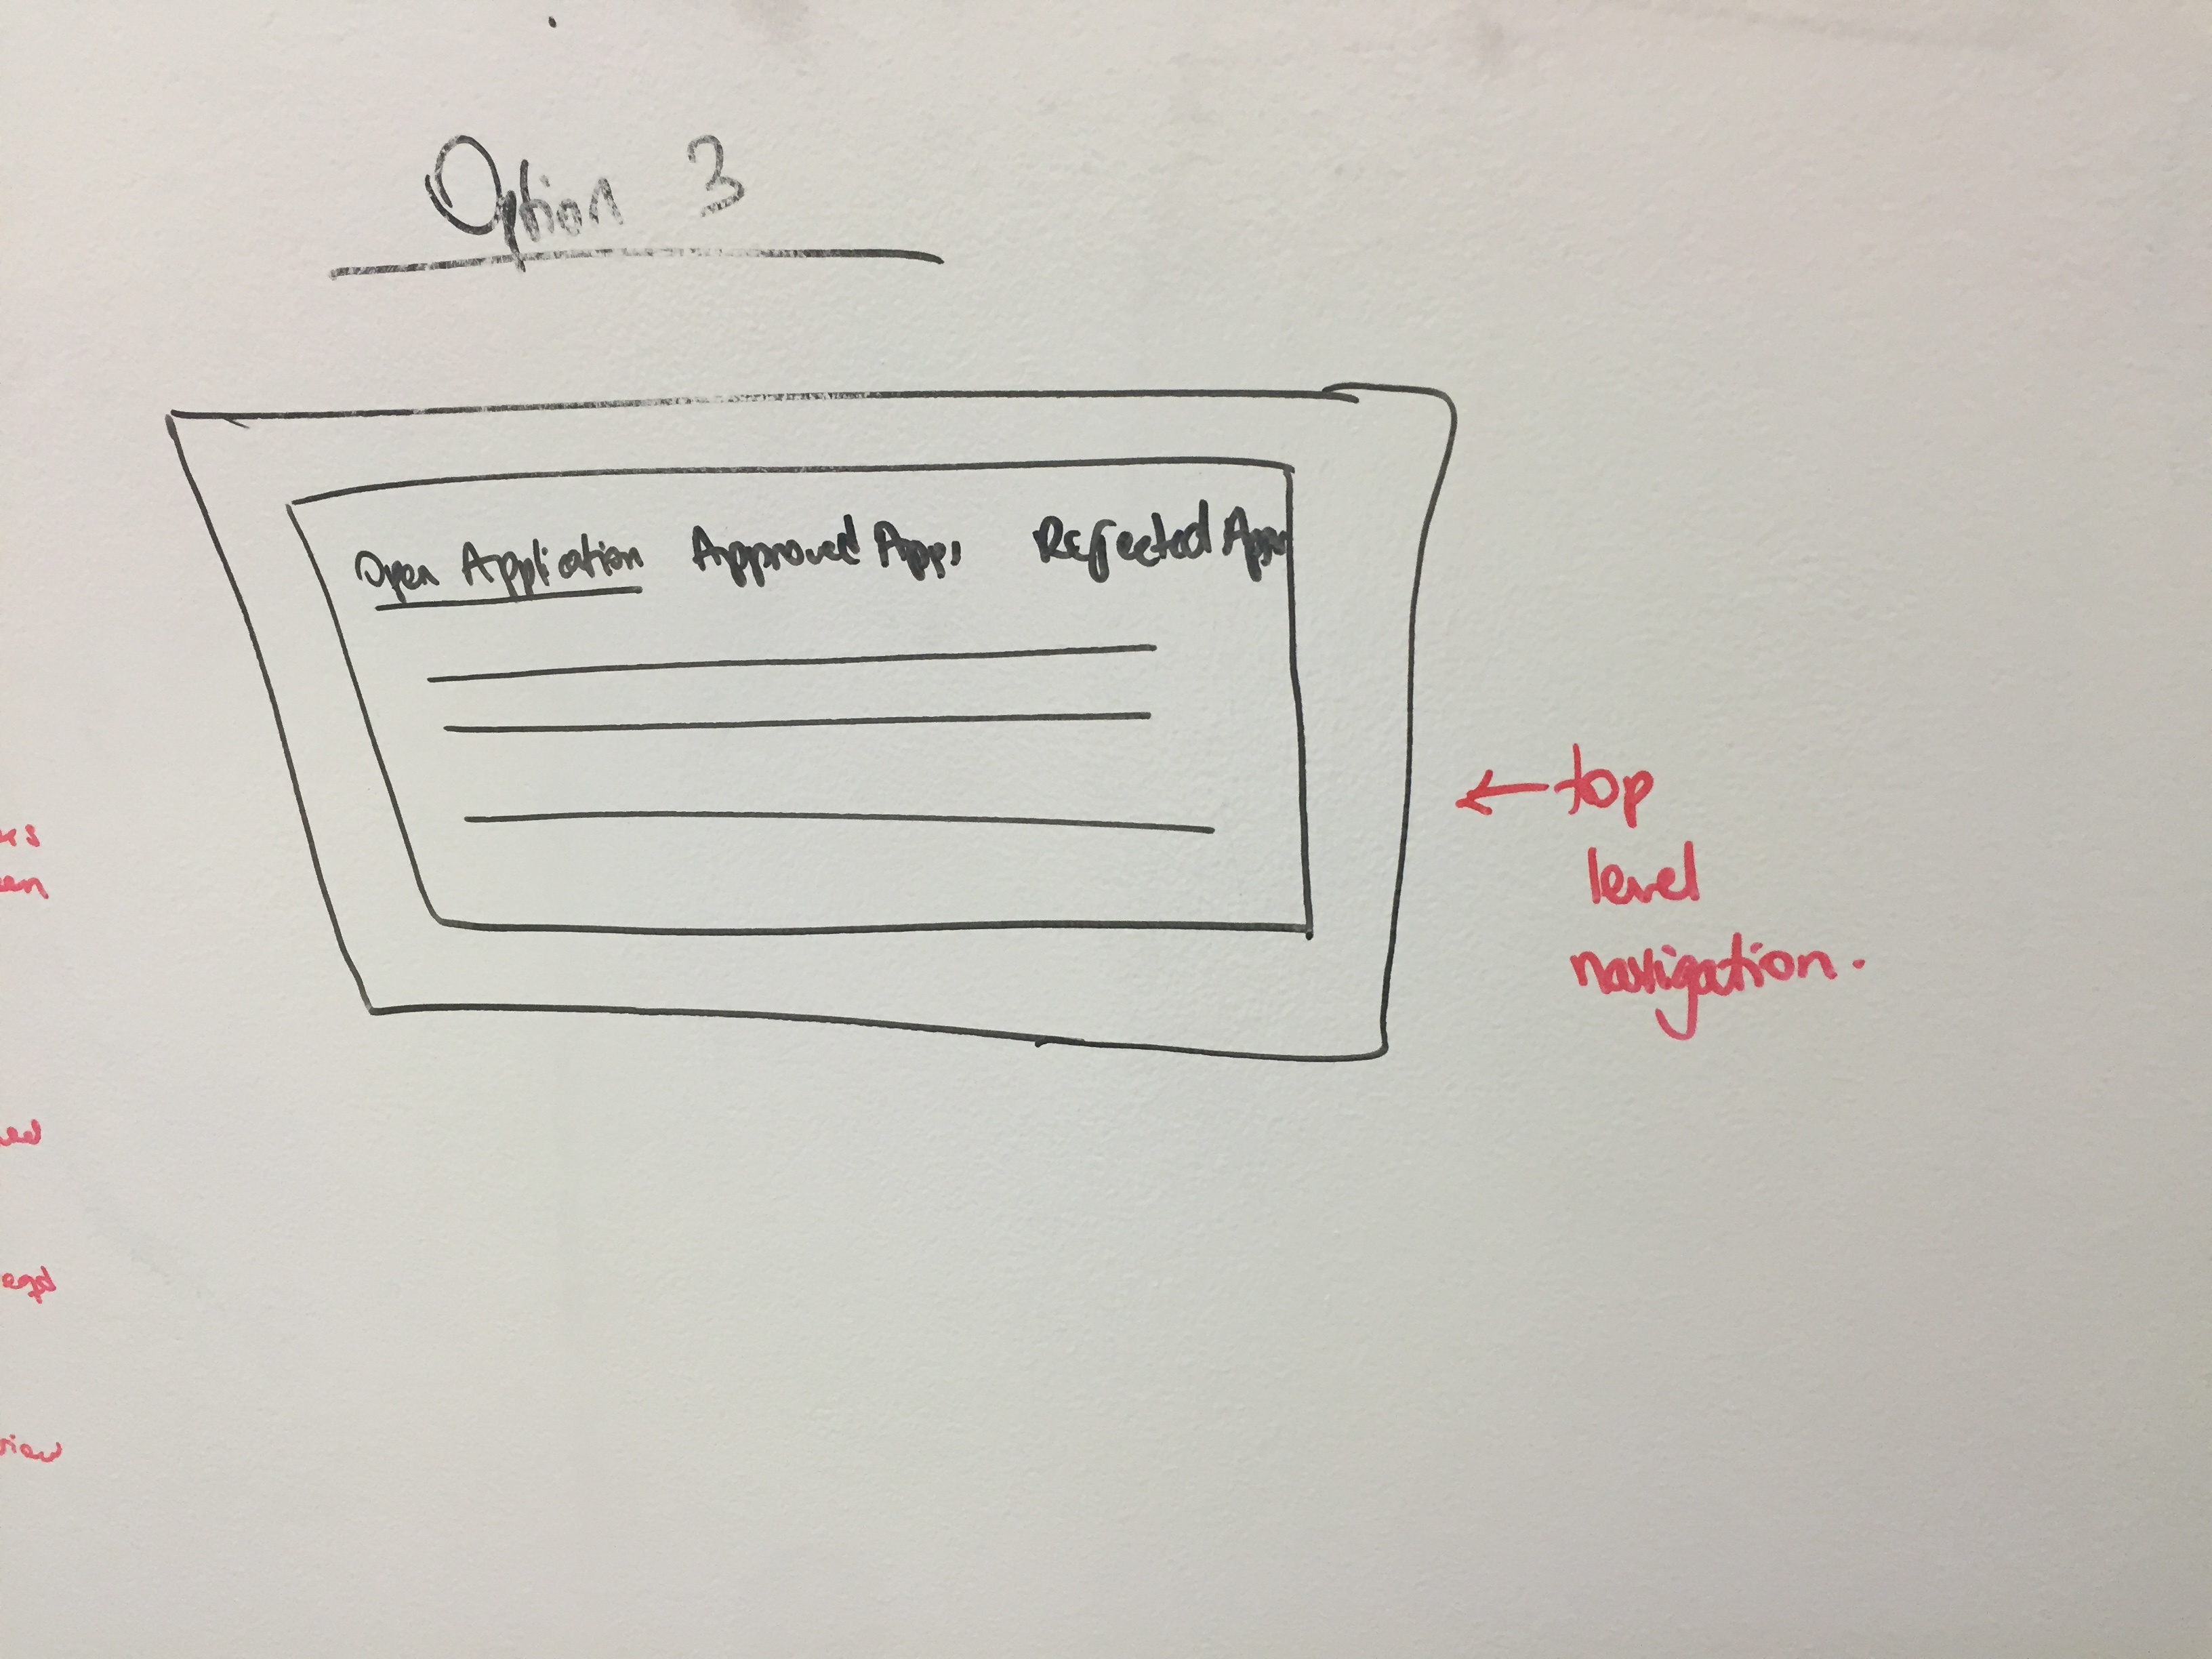 Option 3
Open Application Approved Apps Rejected Apps
← top
level
navigation.